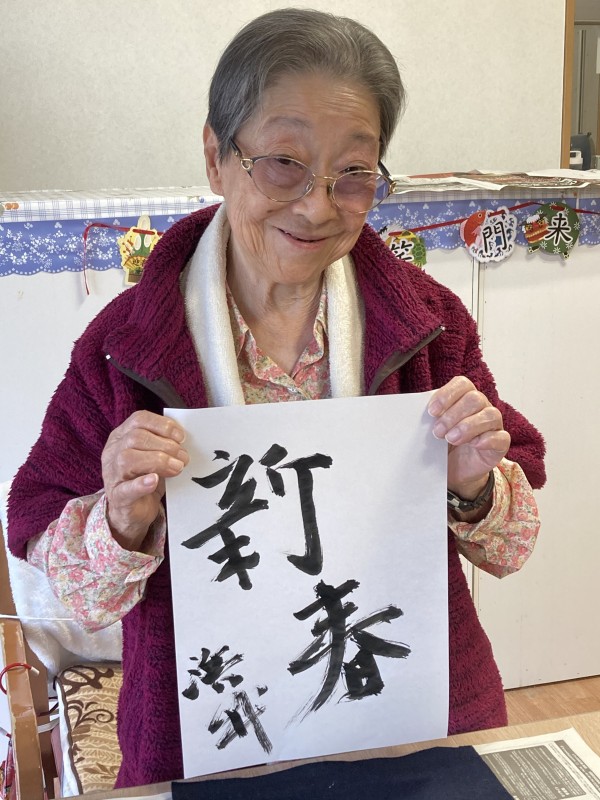 新春
浜代
笑
門
来